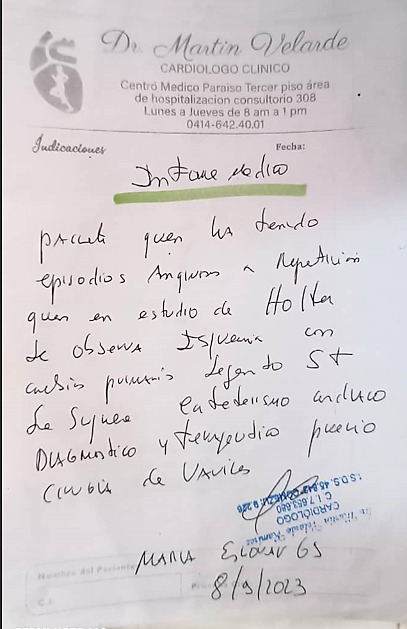 Dr. Martin Velarde
CARDIOLOGO CLINICO
Centro Medico Paraiso Tercer piso área
de hospitalizacion consultorio 308
Lunes a Jueves de 8 am a 1 pm
0414-642.40.01
Indicaciones
Fecha:
Informe Medico
paciente quien ha tenido
episodios Anginosos a Repetición
quien en estudio de Holter
se observa Isquemia con
cambios primarios Segmento ST
Se Sugiere Cateterismo cardiaco
DIAGNOSTICO y terapeutico previo
CIRUGIA de Varices
CARDIOLOGO
C.I. 7.653.680
MARIA Escobar 65
Nombre del Paciente
8/9/2023
C.I.: